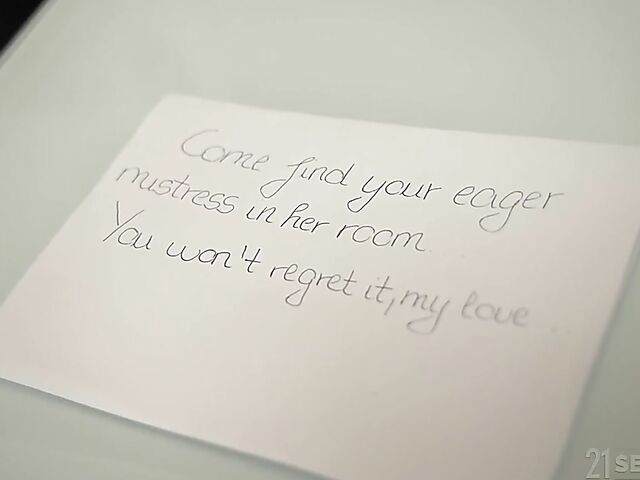 Come find your eager
mistress in her room
You won't regret it, my love ...
21 SE